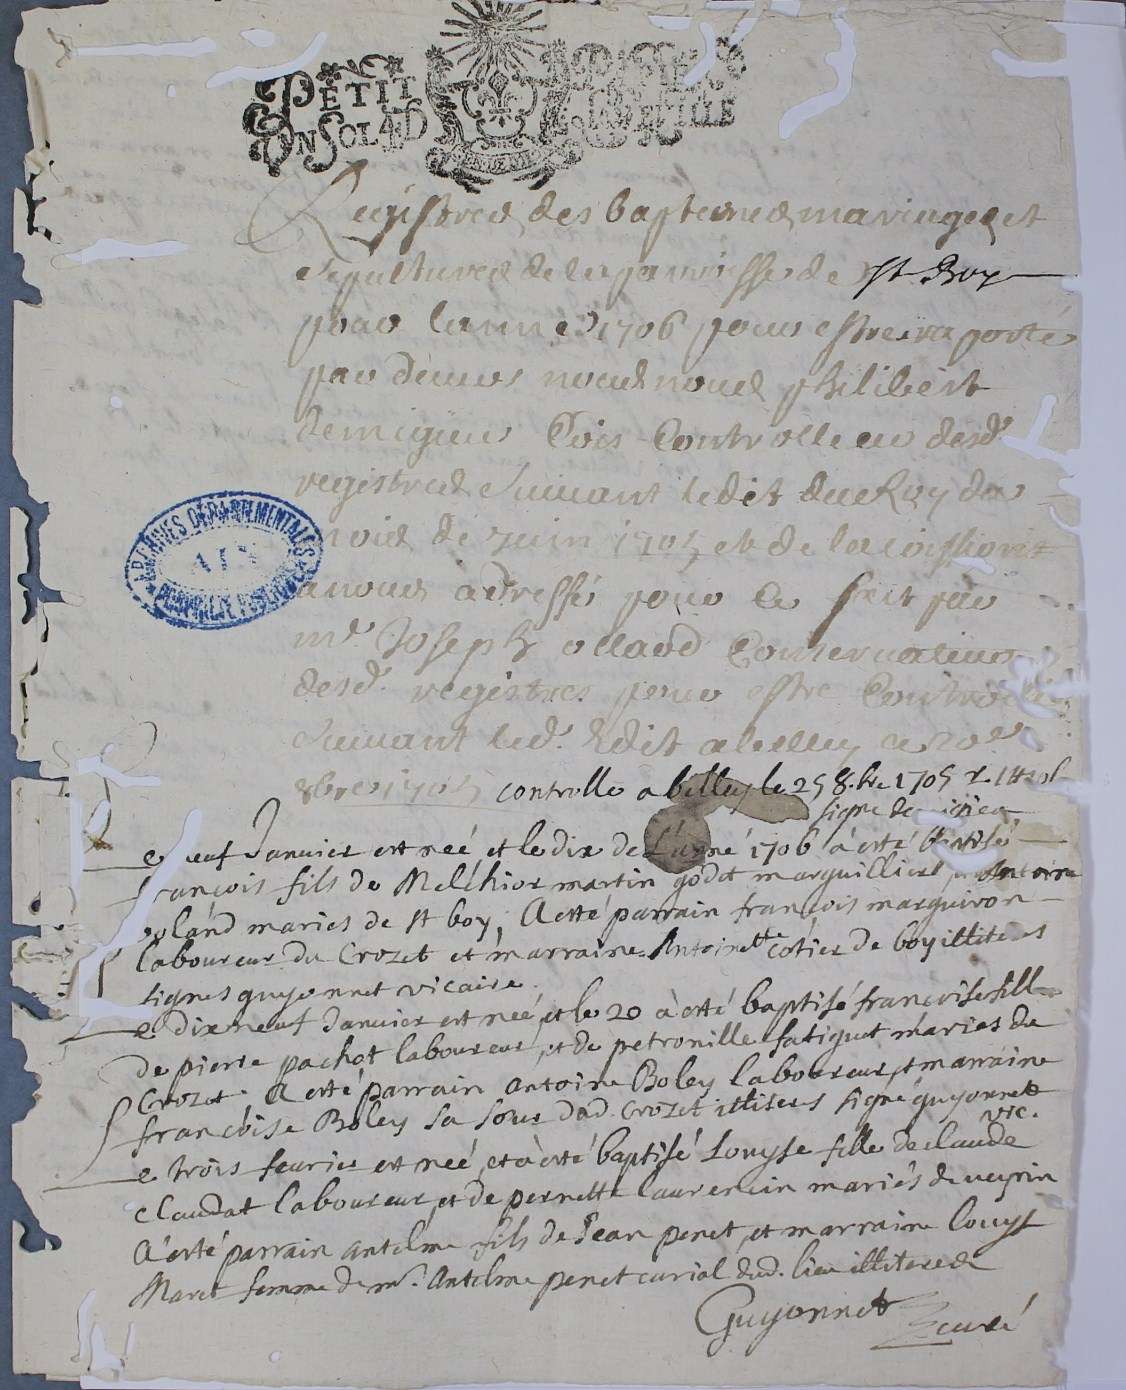 PETIT
UN SOL 4 D
Registres des baptemes mariages et
sepultures de la parroisse de st Boy
pour lannee 1706 pour estre
par devers nous noble philibert
demigieu Controlleur desd.
registres suivant ledit du Roy du
mois de Juin 1705 et de la
a nous adressé pour ce fait par
mr. Joseph ollard Conservateur
desd. registres pour estre Controllé
suivant led. Edit a belley ce 20e
8bre 1705 controllé a belley le 25 8.bre 1705
signe demigieu
Le neuf Janvier est neé et le dix de l'anné 1706 à esté baptisé
françois fils de Melchior martin godet marguilliert Antoine
boland mariés de st boy, A esté parrain françois marguiron
laboureur du Crozet et marraine Antoinette cotier de boy illiteres
signes guyonnet vicaire.
Le dixneuf Janvier est neé, et le 20 à esté baptisé françoise fille
de pierre pachot laboureur, et de petronille fatiguet mariés du
Crozet. A esté parrain antoine Boley laboureur, et marraine
françoise Boley sa sour dud. Crozet illiteres signé guyonnet
vic.
Le trois fevrier est neé, et à esté baptisé Louyse fille de claude
claudat laboureur, et de pernette laurencin mariés de veyrin
A esté parrain antelme fils de Jean penet, et marraine louyse
Maret femme de mr. Antelme penet curial dud. lieu illiteres
Guyonnet curé
ARCHIVES DÉPARTEMENTALES
AIN